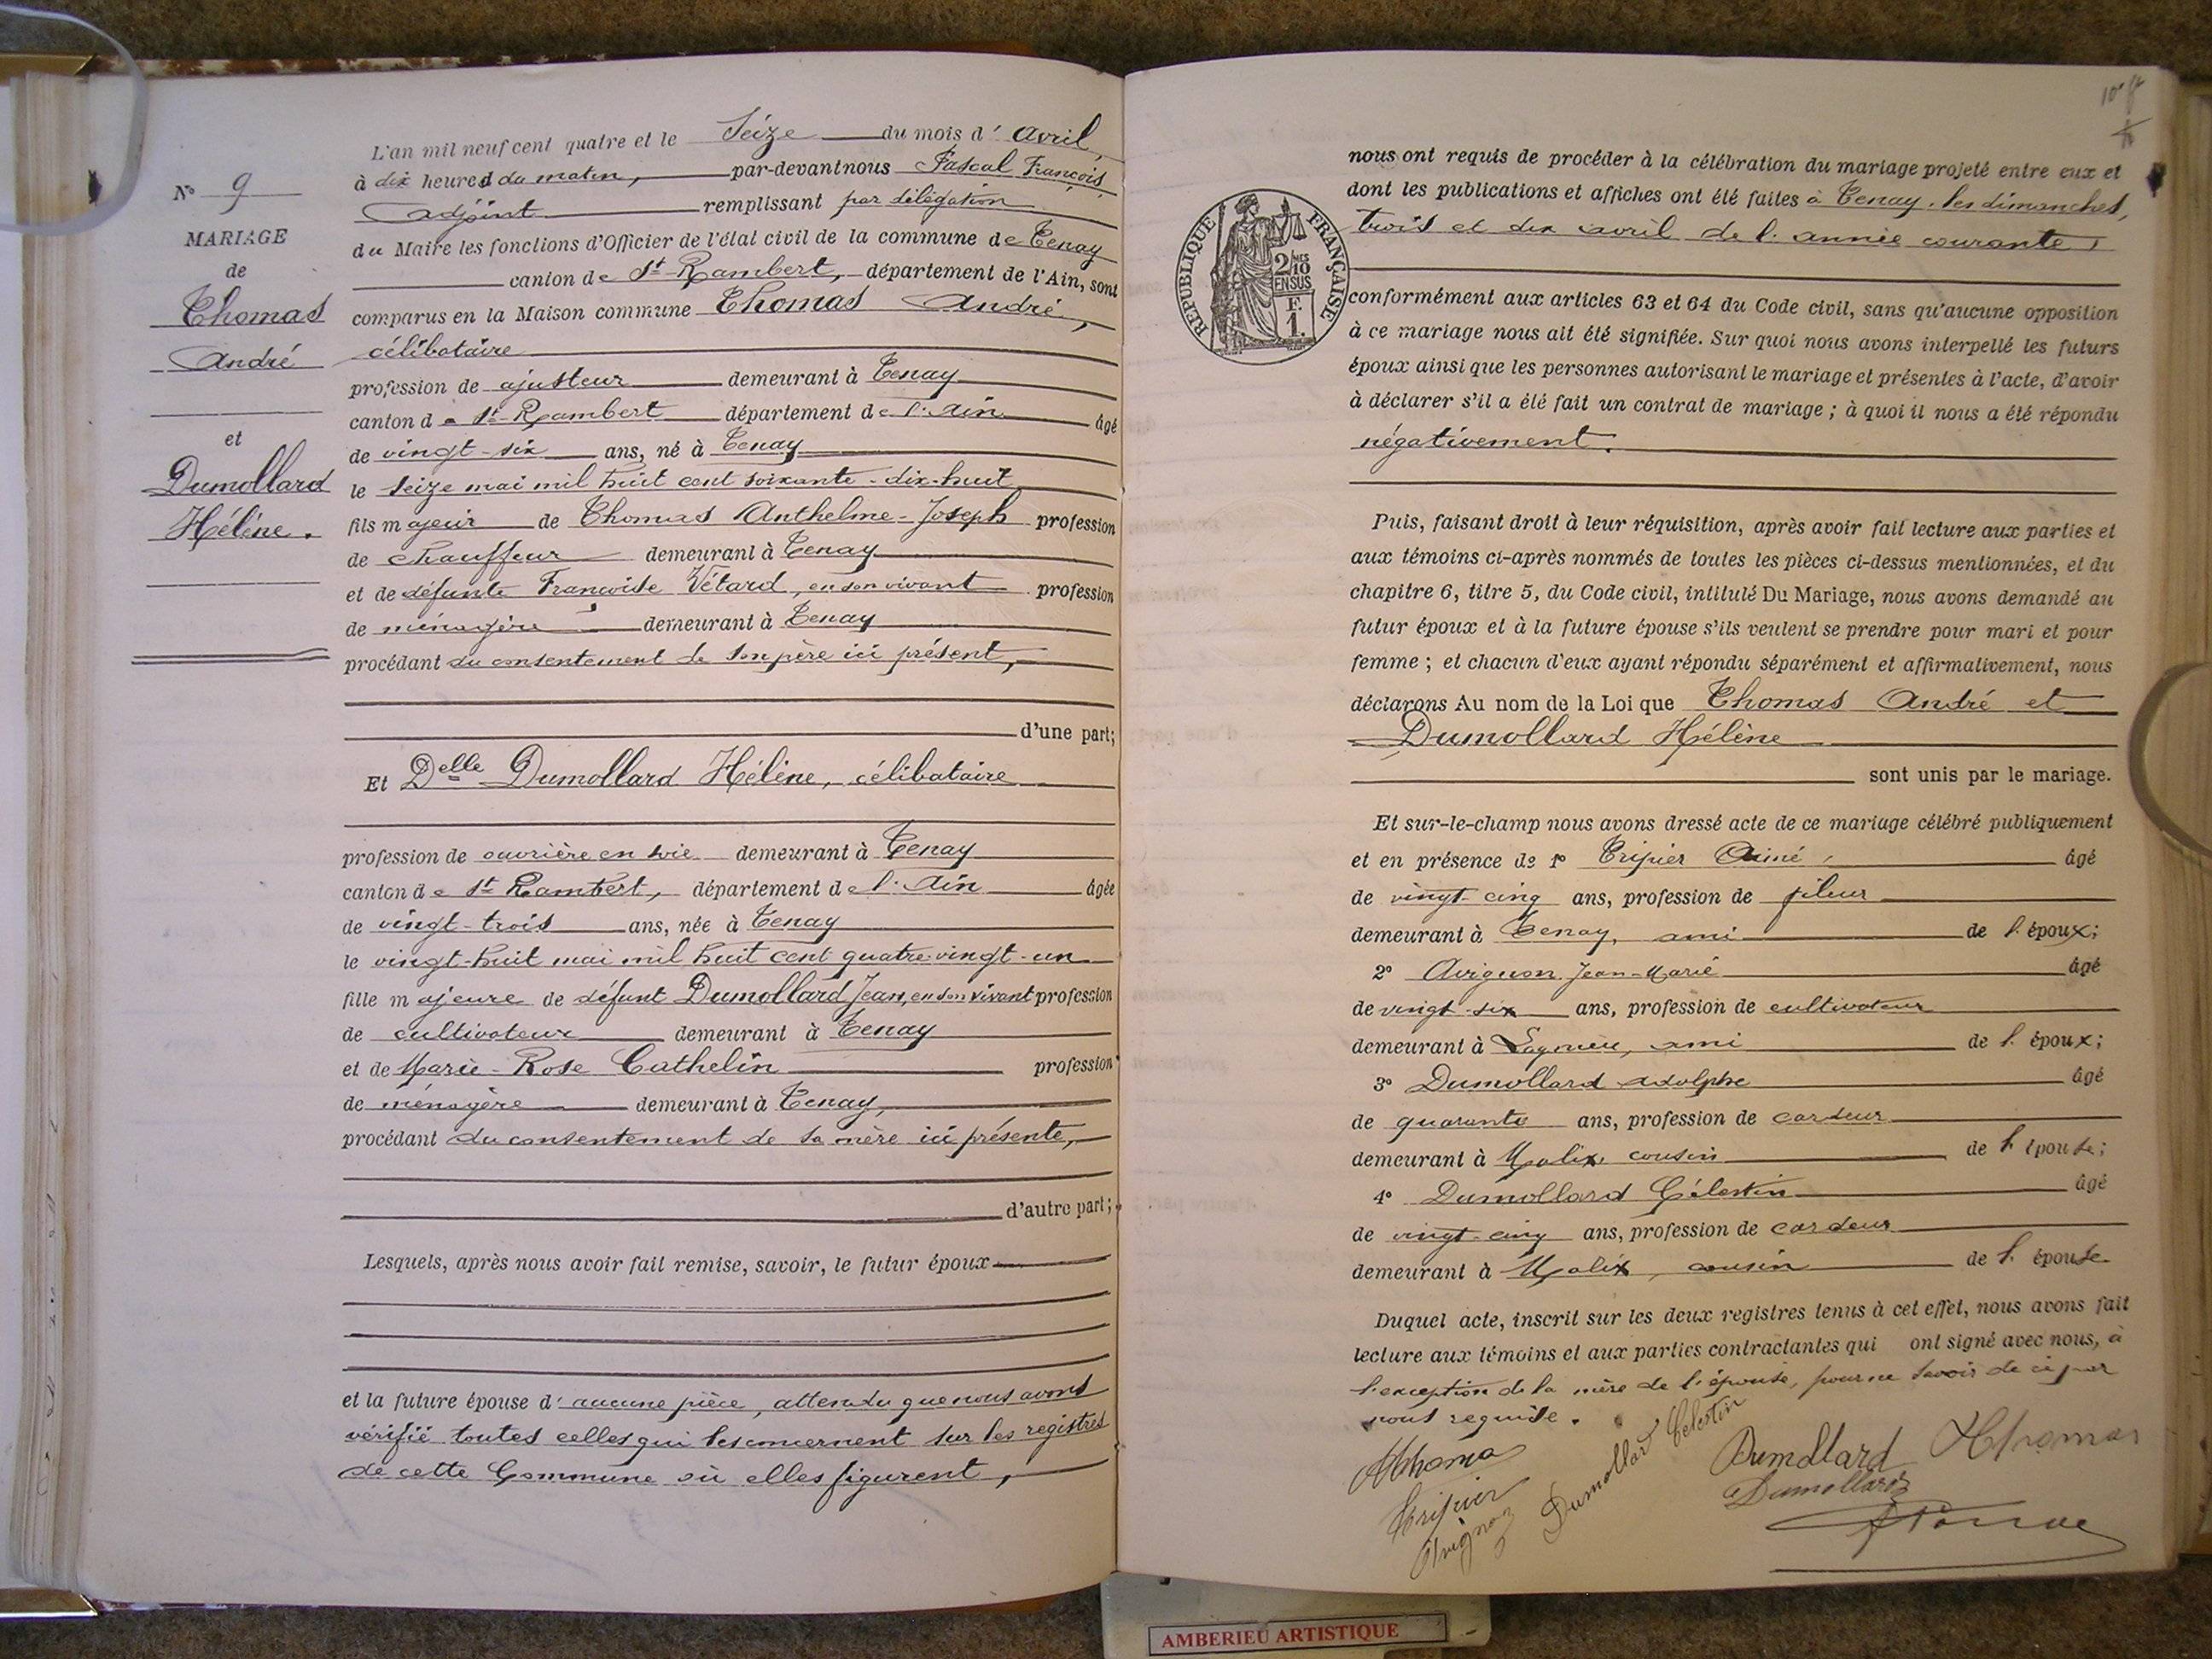 L'an mil neuf cent quatre et le Seize du mois d'Avril,
à dix heures du matin, par-devant nous Pascal François
adjoint remplissant par délégation
du Maire les fonctions d'Officier de l'état civil de la commune de Tenay
canton de St-Rambert, département de l'Ain, sont
comparus en la Maison commune Thomas André,
célibataire
profession de ajusteur demeurant à Tenay
canton de St-Rambert département de l'Ain âgé
de vingt-six ans, né à Tenay
le seize mai mil huit cent soixante-dix-huit
fils majeur de Thomas Anthelme-Joseph profession
de chauffeur demeurant à Tenay
et de défunte Françoise Vétard, en son vivant profession
de ménagère demeurant à Tenay
procédant du consentement de son père ici présent,
d'une part;
Et Delle Dumollard Hélène, célibataire
profession de ouvrière en soie demeurant à Tenay
canton de St Rambert, département de l'Ain âgée
de vingt-trois ans, née à Tenay
le vingt-huit mai mil huit cent quatre-vingt-un
fille majeure de défunt Dumollard Jean, en son vivant profession
de cultivateur demeurant à Tenay
et de Marie-Rose Cathelin profession
de ménagère demeurant à Tenay,
procédant du consentement de sa mère ici présente,
d'autre part;
Lesquels, après nous avoir fait remise, savoir, le futur époux
et la future épouse d'aucune pièce, attendu que nous avons
vérifié toutes celles qui les concernent sur les registres
de cette Commune où elles figurent,
N° 9
MARIAGE
de
Thomas
André
et
Dumollard
Hélène.
nous ont requis de procéder à la célébration du mariage projeté entre eux et
dont les publications et affiches ont été faites à Tenay, les dimanches,
trois et dix avril de l'année courante,
conformément aux articles 63 et 64 du Code civil, sans qu'aucune opposition
à ce mariage nous ait été signifiée. Sur quoi nous avons interpellé les futurs
époux ainsi que les personnes autorisant le mariage et présentes à l'acte, d'avoir
à déclarer s'il a été fait un contrat de mariage; à quoi il nous a été répondu
négativement.
Puis, faisant droit à leur réquisition, après avoir fait lecture aux parties et
aux témoins ci-après nommés de toutes les pièces ci-dessus mentionnées, et du
chapitre 6, titre 5, du Code civil, intitulé Du Mariage, nous avons demandé au
futur époux et à la future épouse s'ils veulent se prendre pour mari et pour
femme; et chacun d'eux ayant répondu séparément et affirmativement, nous
déclarons Au nom de la Loi que Thomas André et
Dumollard Hélène
sont unis par le mariage.
Et sur-le-champ nous avons dressé acte de ce mariage célébré publiquement
et en présence de 1° Tripier Aimé, âgé
de vingt-cinq ans, profession de fileur
demeurant à Tenay, ami de l'époux;
2° Avignon Jean-Marie âgé
de vingt-six ans, profession de cultivateur
demeurant à Lagnieu, ami de l'époux;
3° Dumollard Adolphe âgé
de quarante ans, profession de cardeur
demeurant à Malix, cousin de l'épouse;
4° Dumollard Célestin âgé
de vingt-cinq ans, profession de cardeur
demeurant à Malix, cousin de l'épouse
Duquel acte, inscrit sur les deux registres tenus à cet effet, nous avons fait
lecture aux témoins et aux parties contractantes qui ont signé avec nous, à
l'exception de la mère de l'épouse, pour ne savoir de ce par
nous requise.
AThoma
Tripier
Avignon
Dumollard Celestin
Dumollard
HThomas
Dumollard
RÉPUBLIQUE FRANÇAISE
2/10 MES
EN SUS
F.
1.
AMBERIEU ARTISTIQUE